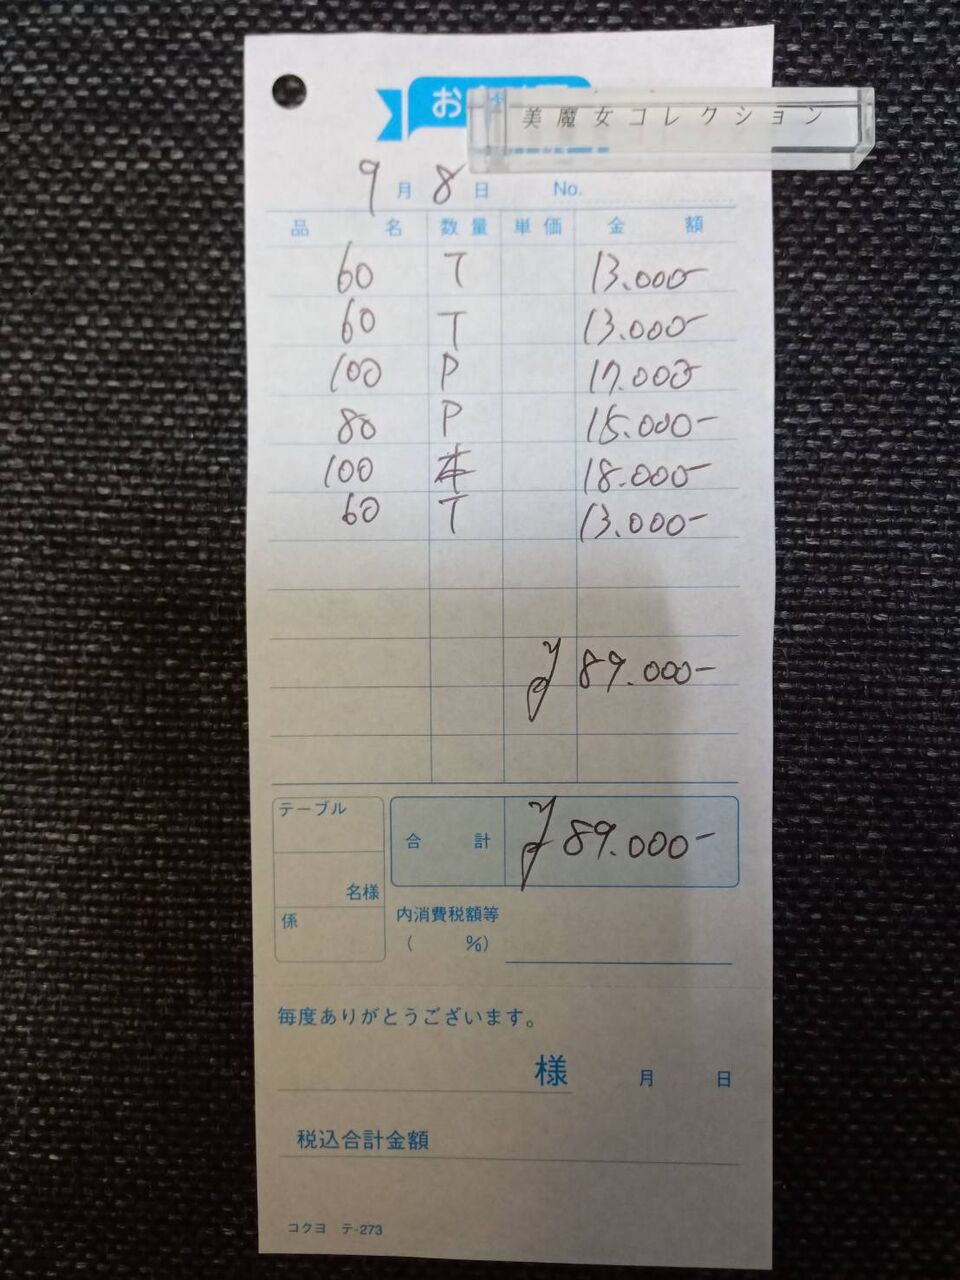 お
美魔女コレクション
9月8日 No.
品名 数量 単価 金額
60 T 13.000-
60 T 13.000-
100 P 17.000-
80 P 15.000-
100 本 18.000-
60 T 13.000-
¥89.000-
テーブル
合計 ¥89.000-
名様
係
内消費税額等
( %)
毎度ありがとうございます。
様 月 日
税込合計金額
コクヨ テ-273